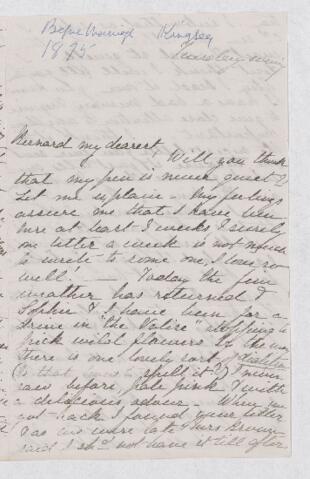 Before Marriage Kingsley
1875
Tuesday evening
Bernard my dearest, Will you think
that my pen is never quiet?
Let me explain. My feelings
assure me that I have been
here at least 2 weeks & surely
one letter a week is not much
to write to some one, I love so
well! — Today the fine
weather has returned &
Sophie & I have been for a
drive in the Valise stopping to
pick wild flowers by the way
there is one lovely sort of
(is that how to spell it?) I never
saw before pale pink & with
a delicious odour. When we
got back I found your letter
as we were late & Mrs Brown
said I shd not have it till after